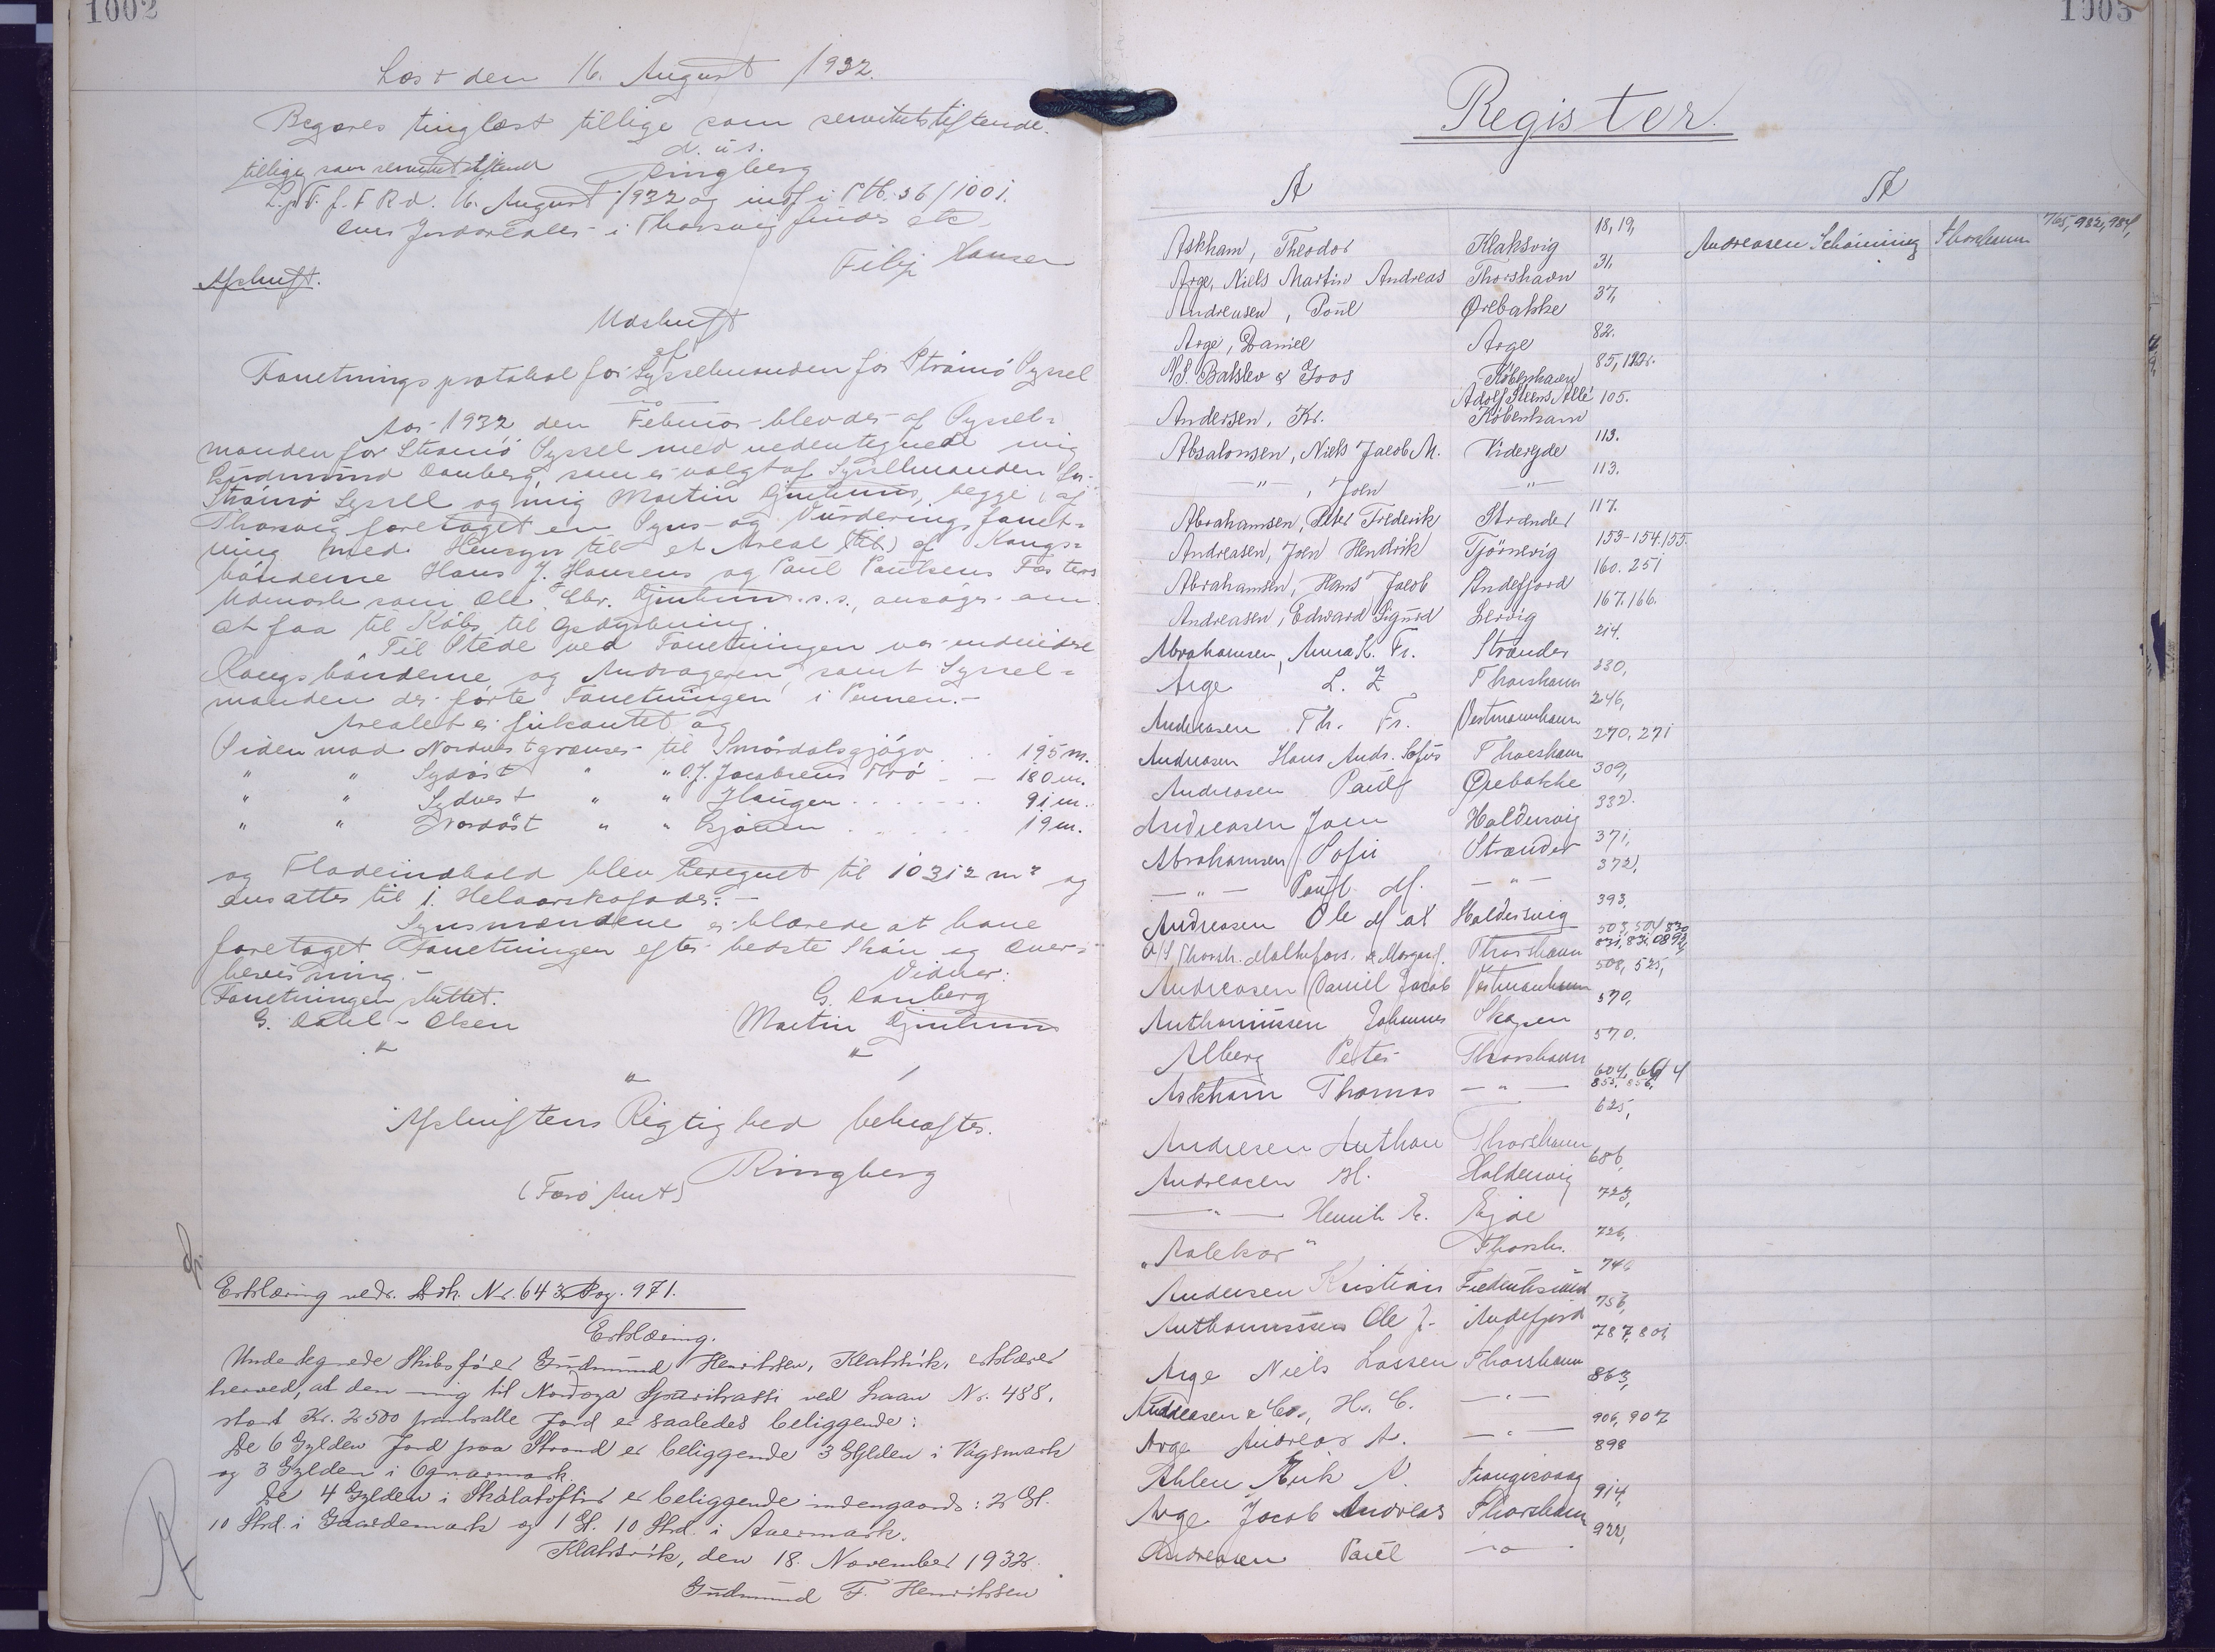 1002
Læst den 16. August 1932.
Begæres tinglæst tillige som servitutstiftende.
d. u. s.
Ringberg
tillige som servitutstiftende
L. p. T. f. F R d. 16. August 1932 og indf i Ptb. 36/1001.
Filip Hansen
Afskrift.
Udskrift
af
Forretningsprotokol for Sysselmanden for Strömö Syssel
Aar 1932 den Februar blev der af Syssel-
manden for Strömö Syssel med undertegnede mig
Gudmund Danberg, som er valgt af Sysselmanden for
Strömö Syssel og mig Martin Gjerhuus, begge af
Thorsvig foretaget en Syns- og Vurderingsforret-
ning med Hensyn til et Areal (til) af Kongs-
bönderne Hans J. Hansens og Poul Poulsens Fæstes
Udmark som Ole Ebr. ansöger om
at faa til Köbs til Opdyrkning.
Til Stede ved Forretningen var
Kongsbönderne og Andrageren samt Syssel-
manden der förte Forretningen i Pennen.-
Arealet er firkantet og
Siden mod Nordvest grænser til Smördalsgjógv . . 195 m.
" " Sydöst " " O.J. Jacobsens Trö - - 180 m.
" " Sydvest " " Haugen . . . . . . . 91 m.
" " Nordöst " " . . . . . 19 m.
og Fladeindhold blev beregnet til 10312 m² og
ansattes til 1. Helaarskofoder.-
Synsmændene erklærede at have
foretaget Forretningen efter bedste Skön og Over-
bevisning.-
Forretningen sluttet. Vidner:
G. Dahl-Olsen G. Danberg
Martin Gjerhuus
" "
"
Afskriftens Rigtighed bekræftes.
Ringberg
(Færö Amt)
Erklæring vedr. Dok. Nr. 643 Pag. 971.
Erklæring.
Undertegnede Skibsförer Gudmund Henriksen, Klaksvik, erklærer
herved, at den mig til Nordoya Sparikassi ved Laan Nr. 488,
stort Kr. 2500 pantsatte Jord er saaledes beliggende:
De 6 Gylden Jord paa Strond er beliggende 3 Gylden i Vágsmark
og 3 Gylden i Ognarmark.
De 4 Gylden i Skálatoftir er beliggende indengaards: 2 Gl.
10 Skd. i Gaardemark og 1 Gl. 10 Skd. i Avermark.
Klaksvik, den 18. November 1932.
Gudmund F. Henriksen
1003
Register.
A
A
Askham, Theodor Klaksvig 18, 19,
Arge, Niels Martin Andreas Thorshavn 31,
Andreasen, Poul Örebakke 37,
Arge, Daniel Arge 82.
A/S. Balslev & Goos København 85, 122.
Andersen, Kr. Adolf Steens Allé København 105.
Absalonsen, Niels Jacob M. Videreide 113.
— " — , Joen — " — 113.
Abrahamsen, Peter Frederik Strænder 117.
Andreasen, Joen Hendrik Tjörnevig 153-154.155.
Abrahamsen, Hans Jacob Andefjord 160. 251
Andreasen, Edward Sigurd Lervig 167. 166.
Abrahamsen, Anna K. Fr. Strænder 214.
Arge L. Z Thorshavn 230,
Andreasen Th. Fr. Vestmannhavn 246,
Andreasen Hans Andr. Sofus Thorshavn 270, 271
Andreasen Paul Örebakke 309,
Andreasen Joen Haldersvig 332.
Abrahamsen Sofie Strænder 371,
— " — Poul M. — " — 372,
Andreasen Ole Haldersvig 393,
A/S Thorsh. Mælkefors. & Margarf. Thorshavn 503, 504 830
Andreasen Daniel Jacob Vestmanhavn 508, 525,
Anthoniussen Johannes Skopen 570,
Alberg Peter Thorshavn 570.
Askham Thomas — " — 604, 664 855, 856,
Andresen Anthon Thorshavn 625,
Andreasen H. Haldersvig 686,
— " — Henrik E. Ejde 723,
"Aalekor" Thorsh. 726,
Andersen Kristian Frederikssund 746
Anthoniussen Ole J. Andefjord 756,
Arge Niels Lassen Thorshavn 787, 801,
Andreasen & Co., H. C. — " — 863,
Arge Andreas A. — " — 906, 907
Ahlen Erik A. Trangisvaag 898
Arge Jacob Andreas Thorshavn 914,
Andreasen Paul — " — 922,
Andreasen Schöining Thorshavn 765, 982, 984,